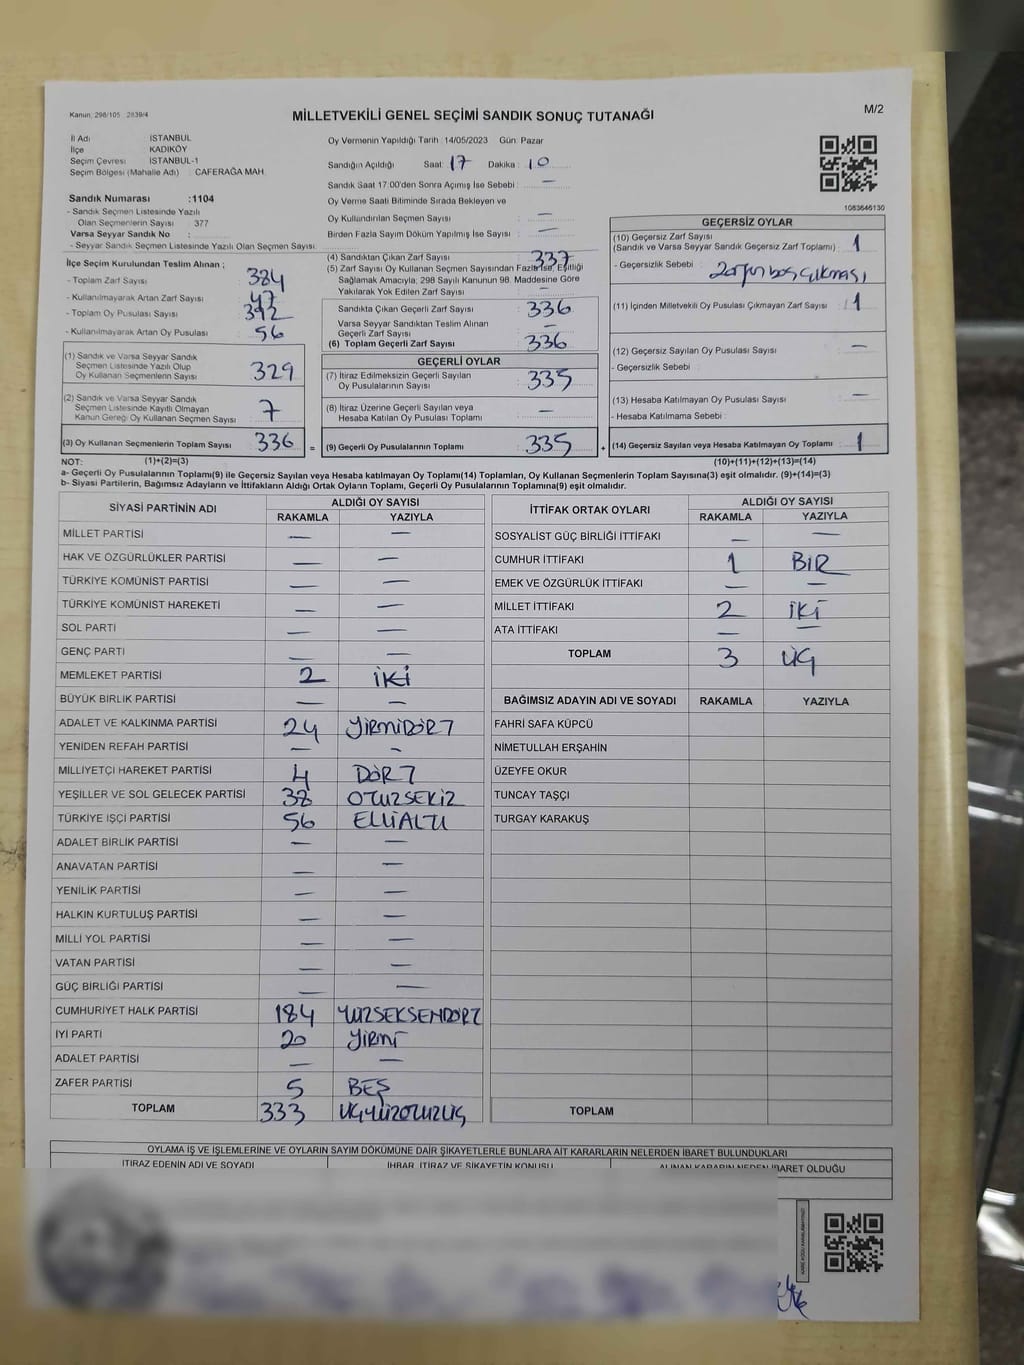 Kanun: 298/105 2839/4
MİLLETVEKİLİ GENEL SEÇİMİ SANDIK SONUÇ TUTANAĞI
M/2
İl Adı : İSTANBUL
İlçe : KADIKÖY
Seçim Çevresi : İSTANBUL-1
Seçim Bölgesi (Mahalle Adı) : CAFERAĞA MAH.
Sandık Numarası :1104
- Sandık Seçmen Listesinde Yazılı
Olan Seçmenlerin Sayısı : 377
Varsa Seyyar Sandık No :
- Seyyar Sandık Seçmen Listesinde Yazılı Olan Seçmen Sayısı:
Oy Vermenin Yapıldığı Tarih : 14/05/2023 Gün: Pazar
Sandığın Açıldığı Saat: 17 Dakika : 10
Sandık Saat 17:00'den Sonra Açılmış İse Sebebi : —
Oy Verme Saati Bitiminde Sırada Bekleyen ve
Oy Kullandırılan Seçmen Sayısı : —
Birden Fazla Sayım Döküm Yapılmış İse Sayısı : —
1083646130
İlçe Seçim Kurulundan Teslim Alınan ;
- Toplam Zarf Sayısı : 384
- Kullanılmayarak Artan Zarf Sayısı : 47
- Toplam Oy Pusulası Sayısı : 392
- Kullanılmayarak Artan Oy Pusulası : 56
(1) Sandık ve Varsa Seyyar Sandık
Seçmen Listesinde Yazılı Olup
Oy Kullanan Seçmenlerin Sayısı : 329
(2) Sandık ve Varsa Seyyar Sandık
Seçmen Listesinde Kayıtlı Olmayan
Kanun Gereği Oy Kullanan Seçmen Sayısı : 7
(3) Oy Kullanan Seçmenlerin Toplam Sayısı : 336
(1)+(2)=(3)
(4) Sandıktan Çıkan Zarf Sayısı : 337
(5) Zarf Sayısı Oy Kullanan Seçmen Sayısından Fazla İse, Eşitliği
Sağlamak Amacıyla; 298 Sayılı Kanunun 98. Maddesine Göre
Yakılarak Yok Edilen Zarf Sayısı : —
Sandıkta Çıkan Geçerli Zarf Sayısı : 336
Varsa Seyyar Sandıktan Teslim Alınan
Geçerli Zarf Sayısı : —
(6) Toplam Geçerli Zarf Sayısı : 336
GEÇERLİ OYLAR
(7) İtiraz Edilmeksizin Geçerli Sayılan
Oy Pusulalarının Sayısı : 335
(8) İtiraz Üzerine Geçerli Sayılan veya
Hesaba Katılan Oy Pusulası Toplamı : —
= (9) Geçerli Oy Pusulalarının Toplamı : 335 +
GEÇERSİZ OYLAR
(10) Geçersiz Zarf Sayısı
(Sandık ve Varsa Seyyar Sandık Geçersiz Zarf Toplamı) : 1
- Geçersizlik Sebebi : zarfın boş çıkması
(11) İçinden Milletvekili Oy Pusulası Çıkmayan Zarf Sayısı : 1
(12) Geçersiz Sayılan Oy Pusulası Sayısı : —
- Geçersizlik Sebebi :
(13) Hesaba Katılmayan Oy Pusulası Sayısı : —
- Hesaba Katılmama Sebebi :
(14) Geçersiz Sayılan veya Hesaba Katılmayan Oy Toplamı : 1
(10)+(11)+(12)+(13)=(14)
NOT:
a- Geçerli Oy Pusulalarının Toplamı(9) ile Geçersiz Sayılan veya Hesaba katılmayan Oy Toplamı(14) Toplamları, Oy Kullanan Seçmenlerin Toplam Sayısına(3) eşit olmalıdır. (9)+(14)=(3)
b- Siyasi Partilerin, Bağımsız Adayların ve İttifakların Aldığı Ortak Oyların Toplamı, Geçerli Oy Pusulalarının Toplamına(9) eşit olmalıdır.
SİYASİ PARTİNİN ADI ALDIĞI OY SAYISI
RAKAMLA YAZIYLA
MİLLET PARTİSİ — —
HAK VE ÖZGÜRLÜKLER PARTİSİ — —
TÜRKİYE KOMÜNİST PARTİSİ — —
TÜRKİYE KOMÜNİST HAREKETİ — —
SOL PARTİ — —
GENÇ PARTİ — —
MEMLEKET PARTİSİ 2 İKİ
BÜYÜK BİRLİK PARTİSİ — —
ADALET VE KALKINMA PARTİSİ 24 YİRMİDÖRT
YENİDEN REFAH PARTİSİ — —
MİLLİYETÇİ HAREKET PARTİSİ 4 DÖRT
YEŞİLLER VE SOL GELECEK PARTİSİ 38 OTUZSEKİZ
TÜRKİYE İŞÇİ PARTİSİ 56 ELLİALTI
ADALET BİRLİK PARTİSİ — —
ANAVATAN PARTİSİ — —
YENİLİK PARTİSİ — —
HALKIN KURTULUŞ PARTİSİ — —
MİLLİ YOL PARTİSİ — —
VATAN PARTİSİ — —
GÜÇ BİRLİĞİ PARTİSİ — —
CUMHURİYET HALK PARTİSİ 184 YÜZSEKSENDÖRT
İYİ PARTİ 20 YİRMİ
ADALET PARTİSİ — —
ZAFER PARTİSİ 5 BEŞ
TOPLAM 333 ÜÇYÜZOTUZÜÇ
İTTİFAK ORTAK OYLARI ALDIĞI OY SAYISI
RAKAMLA YAZIYLA
SOSYALİST GÜÇ BİRLİĞİ İTTİFAKI — —
CUMHUR İTTİFAKI 1 BİR
EMEK VE ÖZGÜRLÜK İTTİFAKI — —
MİLLET İTTİFAKI 2 İKİ
ATA İTTİFAKI — —
TOPLAM 3 ÜÇ
BAĞIMSIZ ADAYIN ADI VE SOYADI RAKAMLA YAZIYLA
FAHRİ SAFA KÜPCÜ
NİMETULLAH ERŞAHİN
ÜZEYFE OKUR
TUNCAY TAŞÇI
TURGAY KARAKUŞ
TOPLAM
OYLAMA İŞ VE İŞLEMLERİNE VE OYLARIN SAYIM DÖKÜMÜNE DAİR ŞİKAYETLERLE BUNLARA AİT KARARLARIN NELERDEN İBARET BULUNDUKLARI
İTİRAZ EDENİN ADI VE SOYADI İHBAR, İTİRAZ VE ŞİKAYETİN KONUSU ALINAN KARARIN NEDEN İBARET OLDUĞU